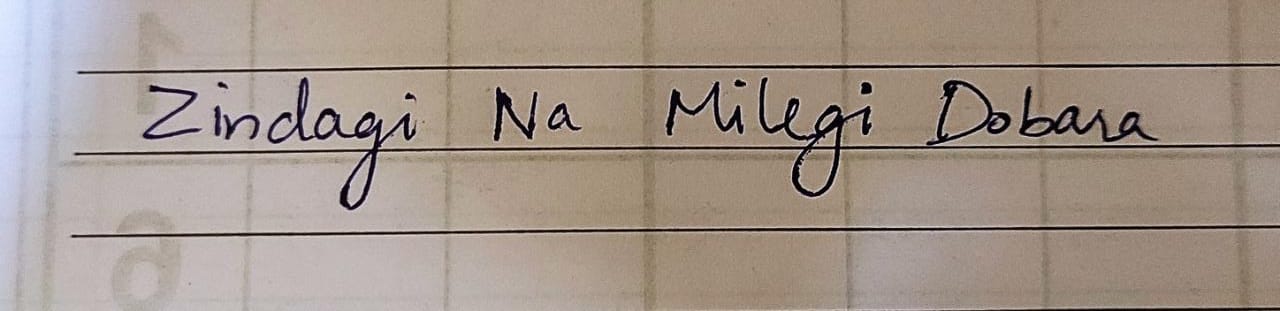 Zindagi Na Milegi Dobara